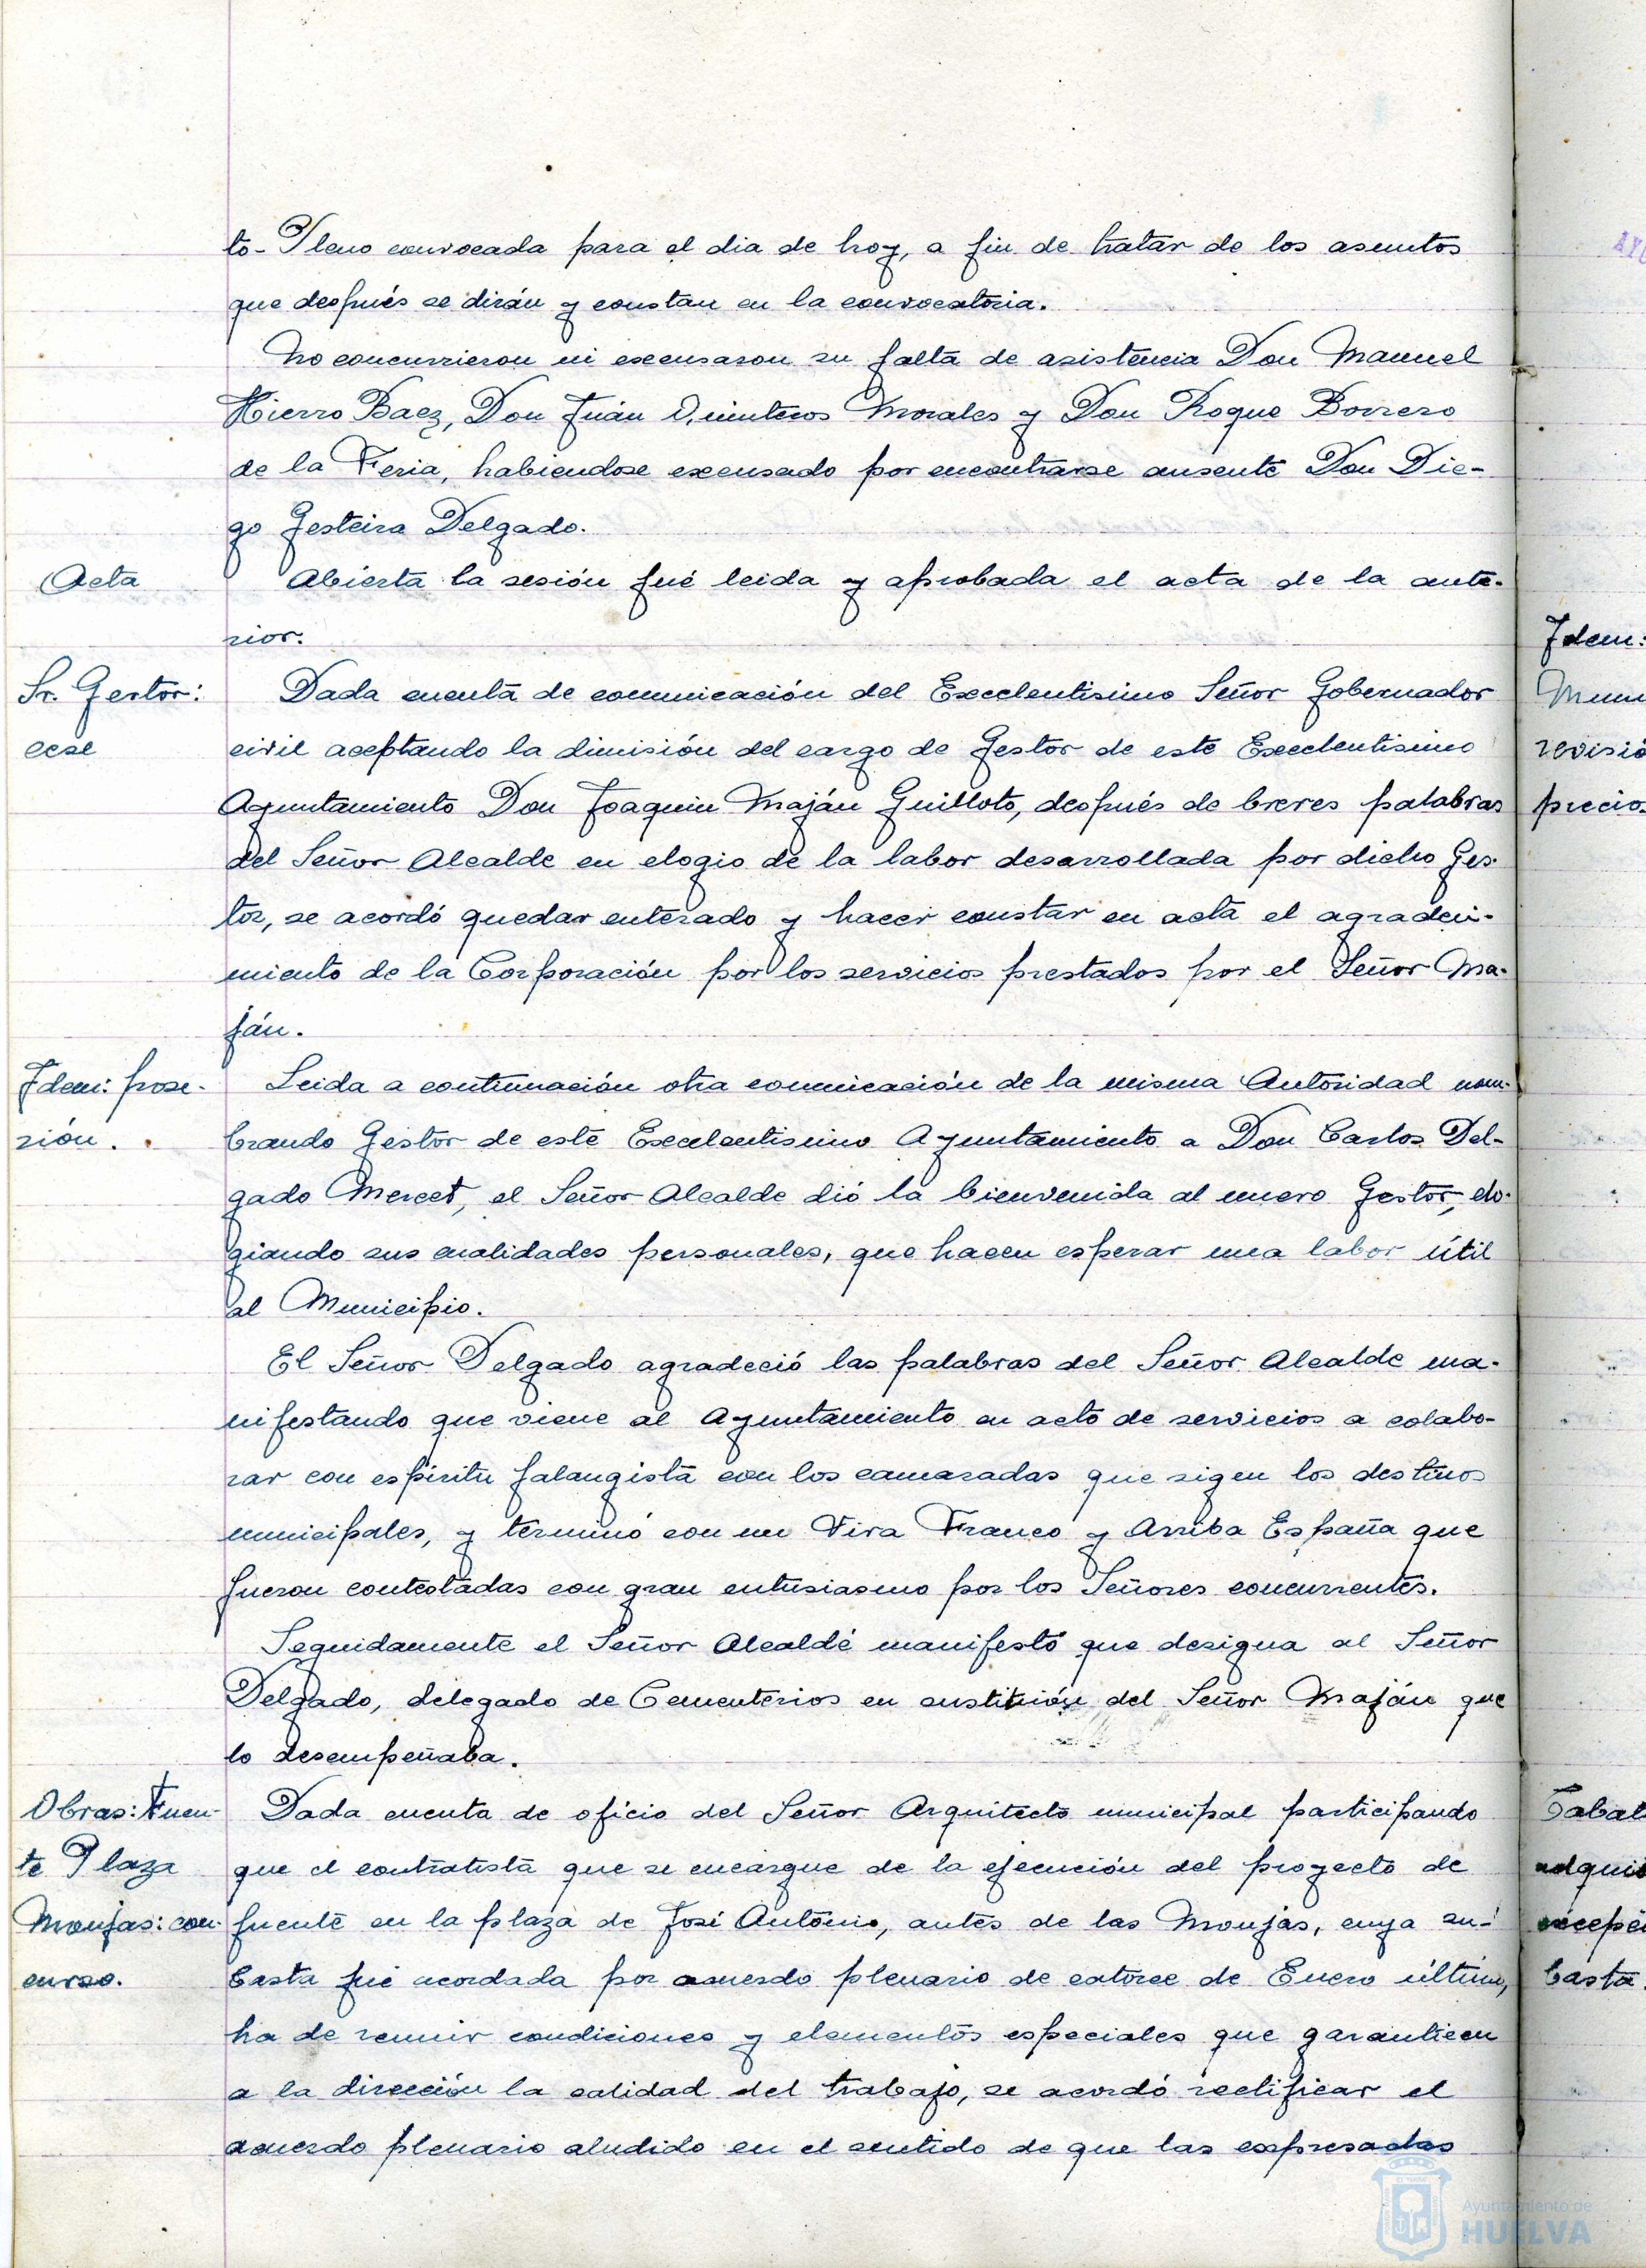 to-Pleno convocada para el dia de hoy, a fin de tratar de los asuntos
que después se dirán y constan en la convocatoria.
No concurrieron ni excusaron su falta de asistencia Don Manuel
Hierro Baez, Don Juán Quinteros Morales y Don Roque Borrero
de la Feria, habiendose excusado por encontrarse ausente Don Die-
go Gesteira Delgado.
Acta
Abierta la sesión fué leida y aprobada el acta de la ante-
rior.
Sr. Gestor:
cese
Dada cuenta de comunicación del Excelentisimo Señor Gobernador
civil aceptando la dimisión del cargo de Gestor de este Excelentisimo
Ayuntamiento Don Joaquin Maján Guilloto, después de breves palabras
del Señor Alcalde en elogio de la labor desarrollada por dicho Ges-
tor, se acordó quedar enterado y hacer constar en acta el agradeci-
miento de la Corporación por los servicios prestados por el Señor Ma-
ján.
Idem: pose-
sión.
Leida a continuación otra comunicación de la misma Autoridad nom-
brando Gestor de este Excelentisimo Ayuntamiento a Don Carlos Del-
gado Mercet, el Señor Alcalde dió la bienvenida al nuevo Gestor, elo-
giando sus cualidades personales, que hacen esperar una labor útil
al Municipio.
El Señor Delgado agradeció las palabras del Señor Alcalde ma-
nifestando que viene al Ayuntamiento en acto de servicios a colabo-
rar con espiritu falangista con los camaradas que rigen los destinos
municipales, y terminó con un Viva Franco y Arriba España que
fueron contestadas con gran entusiasmo por los Señores concurrentes.
Seguidamente el Señor Alcalde manifestó que designa al Señor
Delgado, delegado de Cementerios en sustitución del Señor Maján que
lo desempeñaba.
Obras: Fuen-
te Plaza
Monjas: con-
curso.
Dada cuenta de oficio del Señor Arquitecto municipal participando
que el contratista que se encargue de la ejecución del proyecto de
fuente en la plaza de José Antonio, antes de las Monjas, cuya su-
basta fué acordada por acuerdo plenario de catorce de Enero último,
ha de reunir condiciones y elementos especiales que garanticen
a la dirección la calidad del trabajo, se acordó rectificar el
acuerdo plenario aludido en el sentido de que las expresadas
Idem:
revisió
precio
adquis
basta
Ayuntamiento de
HUELVA